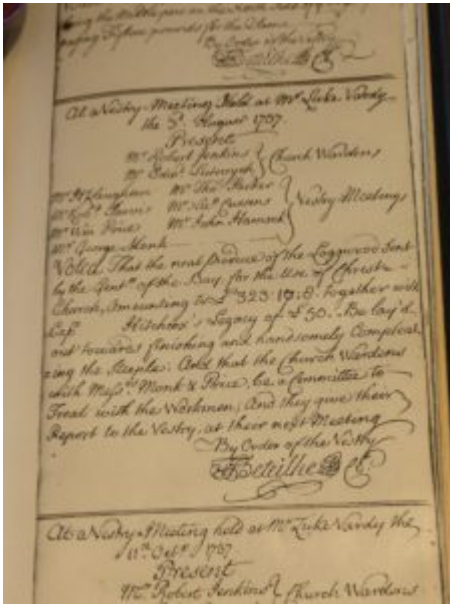 paying Fifteen pounds for the Same
By Order of the Vestry
At a Vestry Meeting Held at Mr Luke Vardy
the 5th August 1737
Present
Mr Robert Jenkins Church Wardens
Mr
Mr Vaughan Mr Thos Parker
Mr Robt Mr Cussens Vestry Meetings
Mr Wm Price Mr John Hamock
Mr George Monk
Voted, That the neat Produce of the Logwood Sent
by the Gentn of the Bay, for the Use of Christ
Church, Amounting to £323:10:8. together with
Capt Hitchins's Legacy of £50. Be lay'd
out towards finishing and handsomely Compleat
ing the Steeple: And that the Church Wardens
with Messrs Monk & Price, be a Committee to
Treat with the Workmen; And they give their
Report to the Vestry, at their next Meeting
By Order of the Vestry
At a Vestry Meeting held at Mr Luke Vardy the
11th Octr 1737
Present
Mr Robert Jenkins Church Wardens